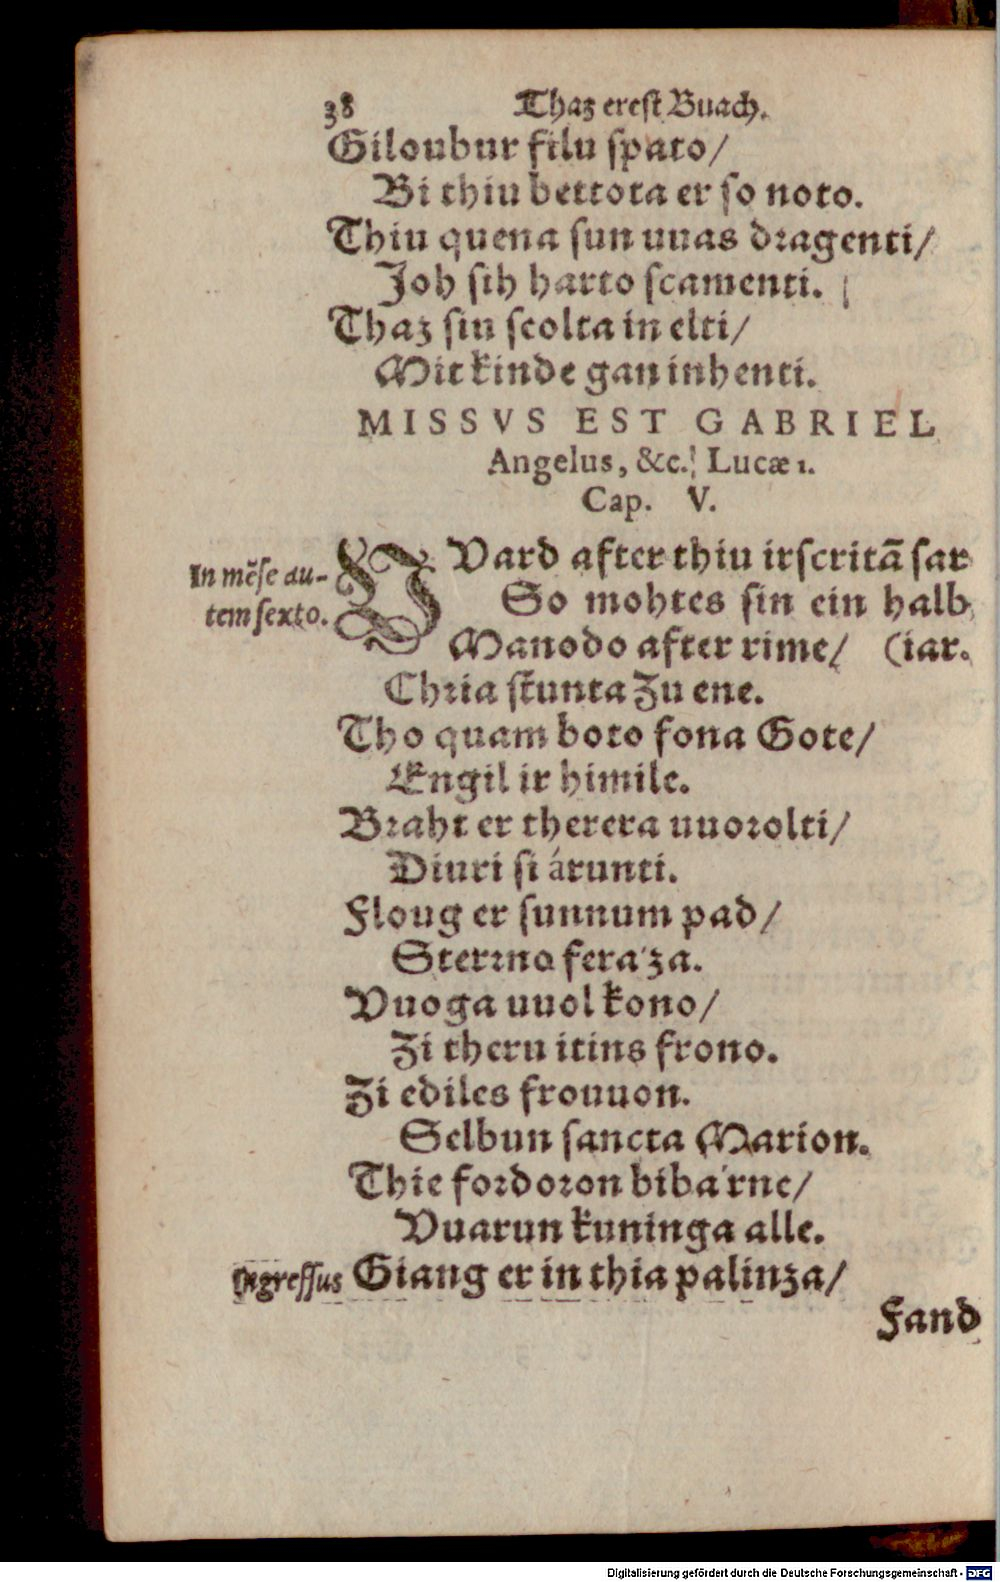 38 Thaz erest Buach.
Giloubur filu spato/
Bi thiu bettota er so noto.
Thiu quena sun uuas dragenti/
Joh sih harto scamenti.
Thaz sin scolta in elti/
Mit kinde gan inhenti.
MISSVS EST GABRIEL
Angelus, &c. Lucæ 1.
Cap. V.
In mẽse au-
tem sexto.
VVard after thiu irscritã sar
So mohtes sin ein halb
Manodo after rime/ (iar.
Thria stunta Zu ene.
Tho quam boto fona Gote/
Engil ir himile.
Braht er therera uuorolti/
Diuri si árunti.
Floug er sunnum pad/
Sterrno fera'za.
Vuoga uuolkono/
Zi theru itins frono.
Zi ediles frouuon.
Selbun sancta Marion.
Thie fordoron biba'rne/
Vuarun kuninga alle.
Ingressus Giang er in thia palinza/
Fand
Digitalisierung gefördert durch die Deutsche Forschungsgemeinschaft - DFG